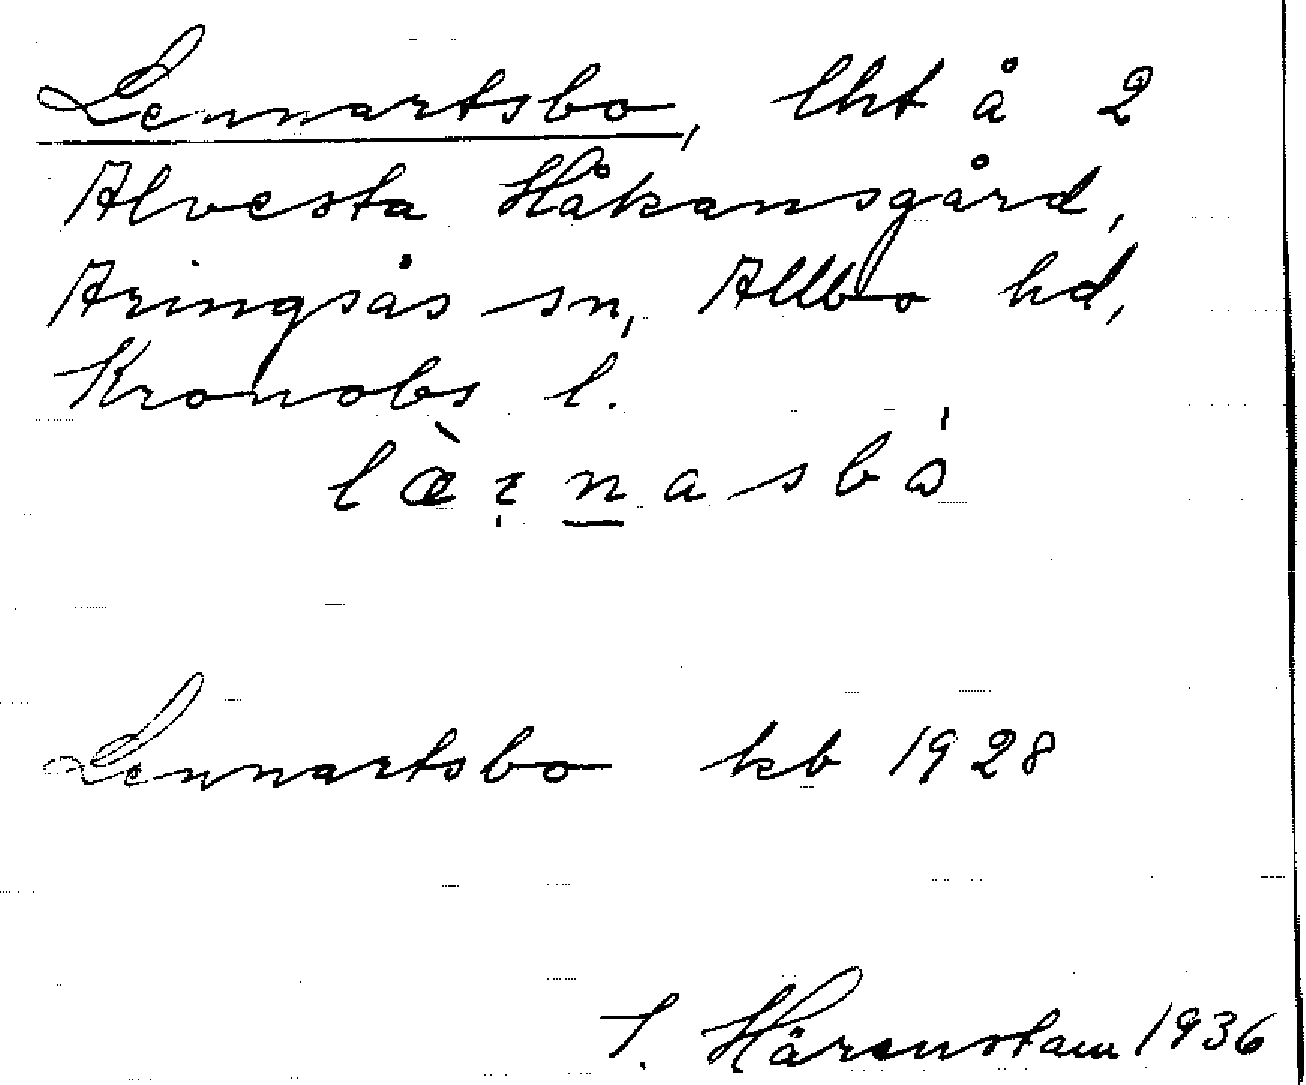 Lennartsbo, lht å 2
Alvesta Håkansgård,
Aringsås sn, Allbo hd,
Kronobs l.
Lennartsbo kb 1928
Härenstam 1936